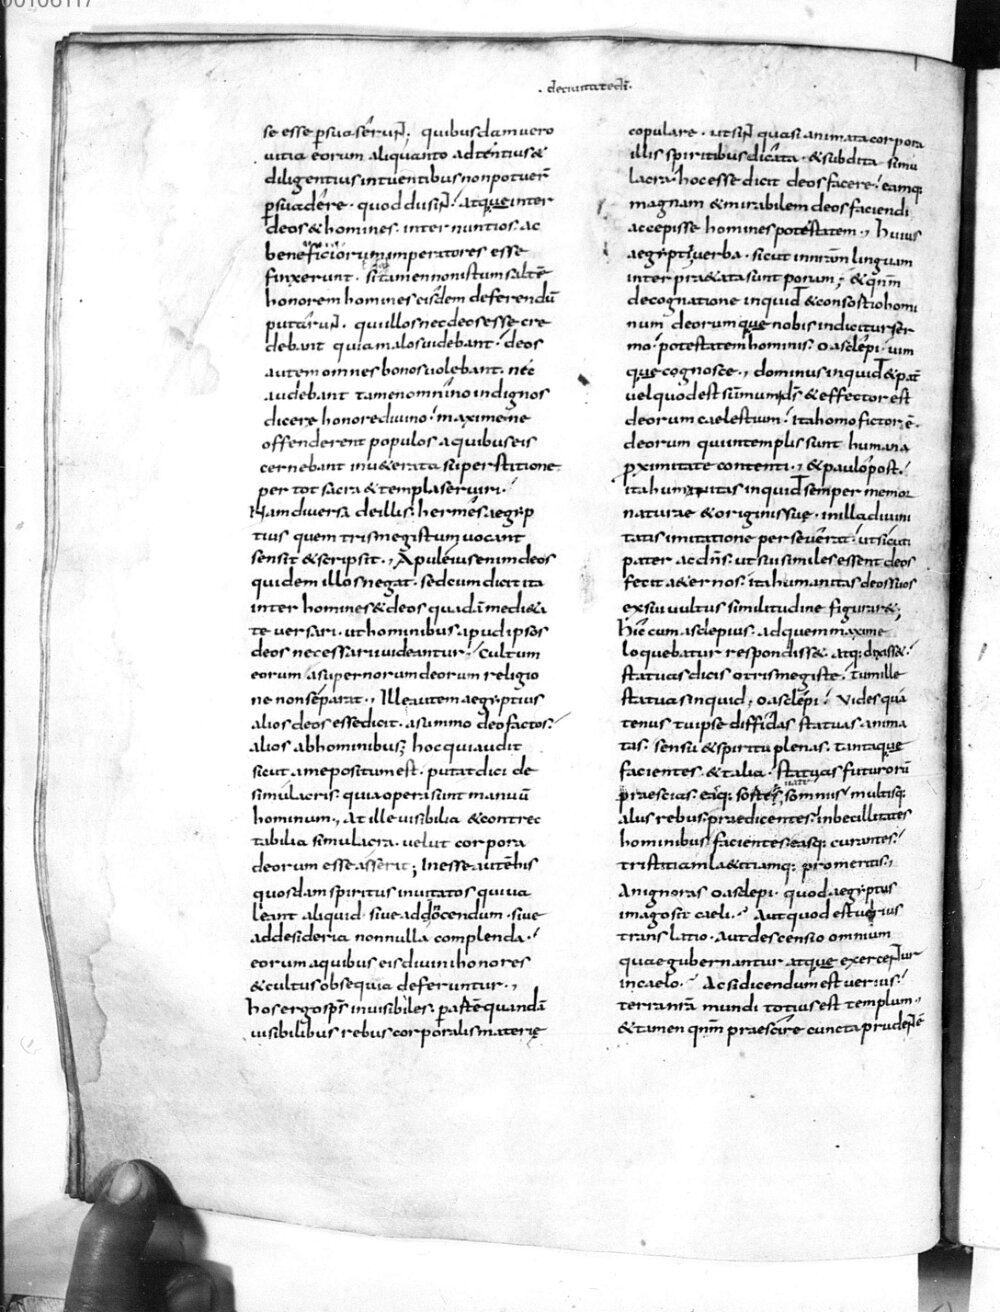 00106117
. deciuitatedi̅.
se esse ꝑsuaserun̅. quibusdamuero
uitia eorum aliquanto adtentius&
diligentius intuentibus nonpotuer̅
ꝑsuadere. quod dii sin̅. atque inter
deos & homines. internuntios. ac
beneficiorum imperatores esse
finxerunt. sitamennonistumsalte̅
honorem homines eisdem deferendu̅
putarun̅. quiillosnecdeosesse cre
debant quiamalosuidebant. deos
autem omnes bonosuolebant. nec
audebant tamenomnino indignos
dicere honorediuino. maximene
offenderent populos aquibuseis
cernebant inu&erata superstitione
per tot sacra & templaseruiri.
Nam diuersa deillis. hermes aegyp
tius quem trismegistum uocant
sensit & scripsit., Apuleiusenimdeos
quidem illosnegat. sedcumdicit ita
inter homines&deos quada̅ medi&a
te uersari. uthominibus apudipsos
deos necessarii uideantur. Cultum
eorum asupernorumdeorum religio
ne nonseparat., Illeautemaegyptius
alios deos essedicit. asummo deofactos.
alios abhominibus; hocquiaudit
sicut ameposítumest. putatdici de
simulacris. quiaoperasunt manuu̅
hominum., At ille uisibilia &contrec
tabilia simulacra. uelut corpora
deorum esse asserit; Inesse aute̅ his
quosdamspiritus inuitatos quiua
leant aliquid. siue addocendum. siue
addesideria nonnulla complenda.
eorum aquibus eisdiuinihonores
& cultus obsequia deferuntur.,
hosergosp̅s inuisibiles. ꝑarte̅ quanda̅
uisibilibus rebus corporalis materię
copulare. utsin̅ quasi animata corpora
illis spiritibus dicata. & subdita simu
lacra. hocesse dicit deos facere. eamq;
magnam & mirabilem deosfaciendi
accepisse homines potestatem., huius
aegyptii uerba. sicut innr̅am linguam
interpr&ata sunt ponam; & qnm̅
decognatione inquid & consortio homi
num deorumque nobis indiciturser
mo. potestatem hominis. oasclepi. uim
que cognosce., dominus inquid & pat̅
uelquodest summum d̅s & effector est
deorum caelestium. ita homo fictor e̅.
deorum quiintemplis sunt humana
ꝓximitate contenti., & paulo post.
ita humanitas inquid semper memor
naturae & originis suę. inilladiuini
tatis imitatione perseuerat. utsicuti
pater ac dn̅s. ut suisimiles essent deos
fecit a&ernos. ita humanitas deossuos
exsui uultus similitudine figurar&;
Hic cum asclepius. adquemmaxime
loquebatur respondiss&. atq; dixiss&.
statuas dicis otrismegiste. tumille
statuas inquid. o asclepi. Vides qua
tenus tuipse diffidas statuas. anima
tas. sensu & spiritu plenas. tantaque
facientes. & talia. statuas futuroru̅
praescias. easq; somnis multisq;
aliis rebus praedicentes. inbecillitates
hominibus facientes. easq; curantes.
tristitiam la&itiamq; ꝓ meritis.,
Anignoras oasclepi. quod aegyptus
imago sit caeli. Aut quod est uerius
translatio. Aut descensio omnium
quae gubernantur atque exercen̅tur
incaelo. Acsidicendum est uerius.
terra nr̅a mundi totius est templum.,
& tamen qnm̅ praescire cuncta prudente̅